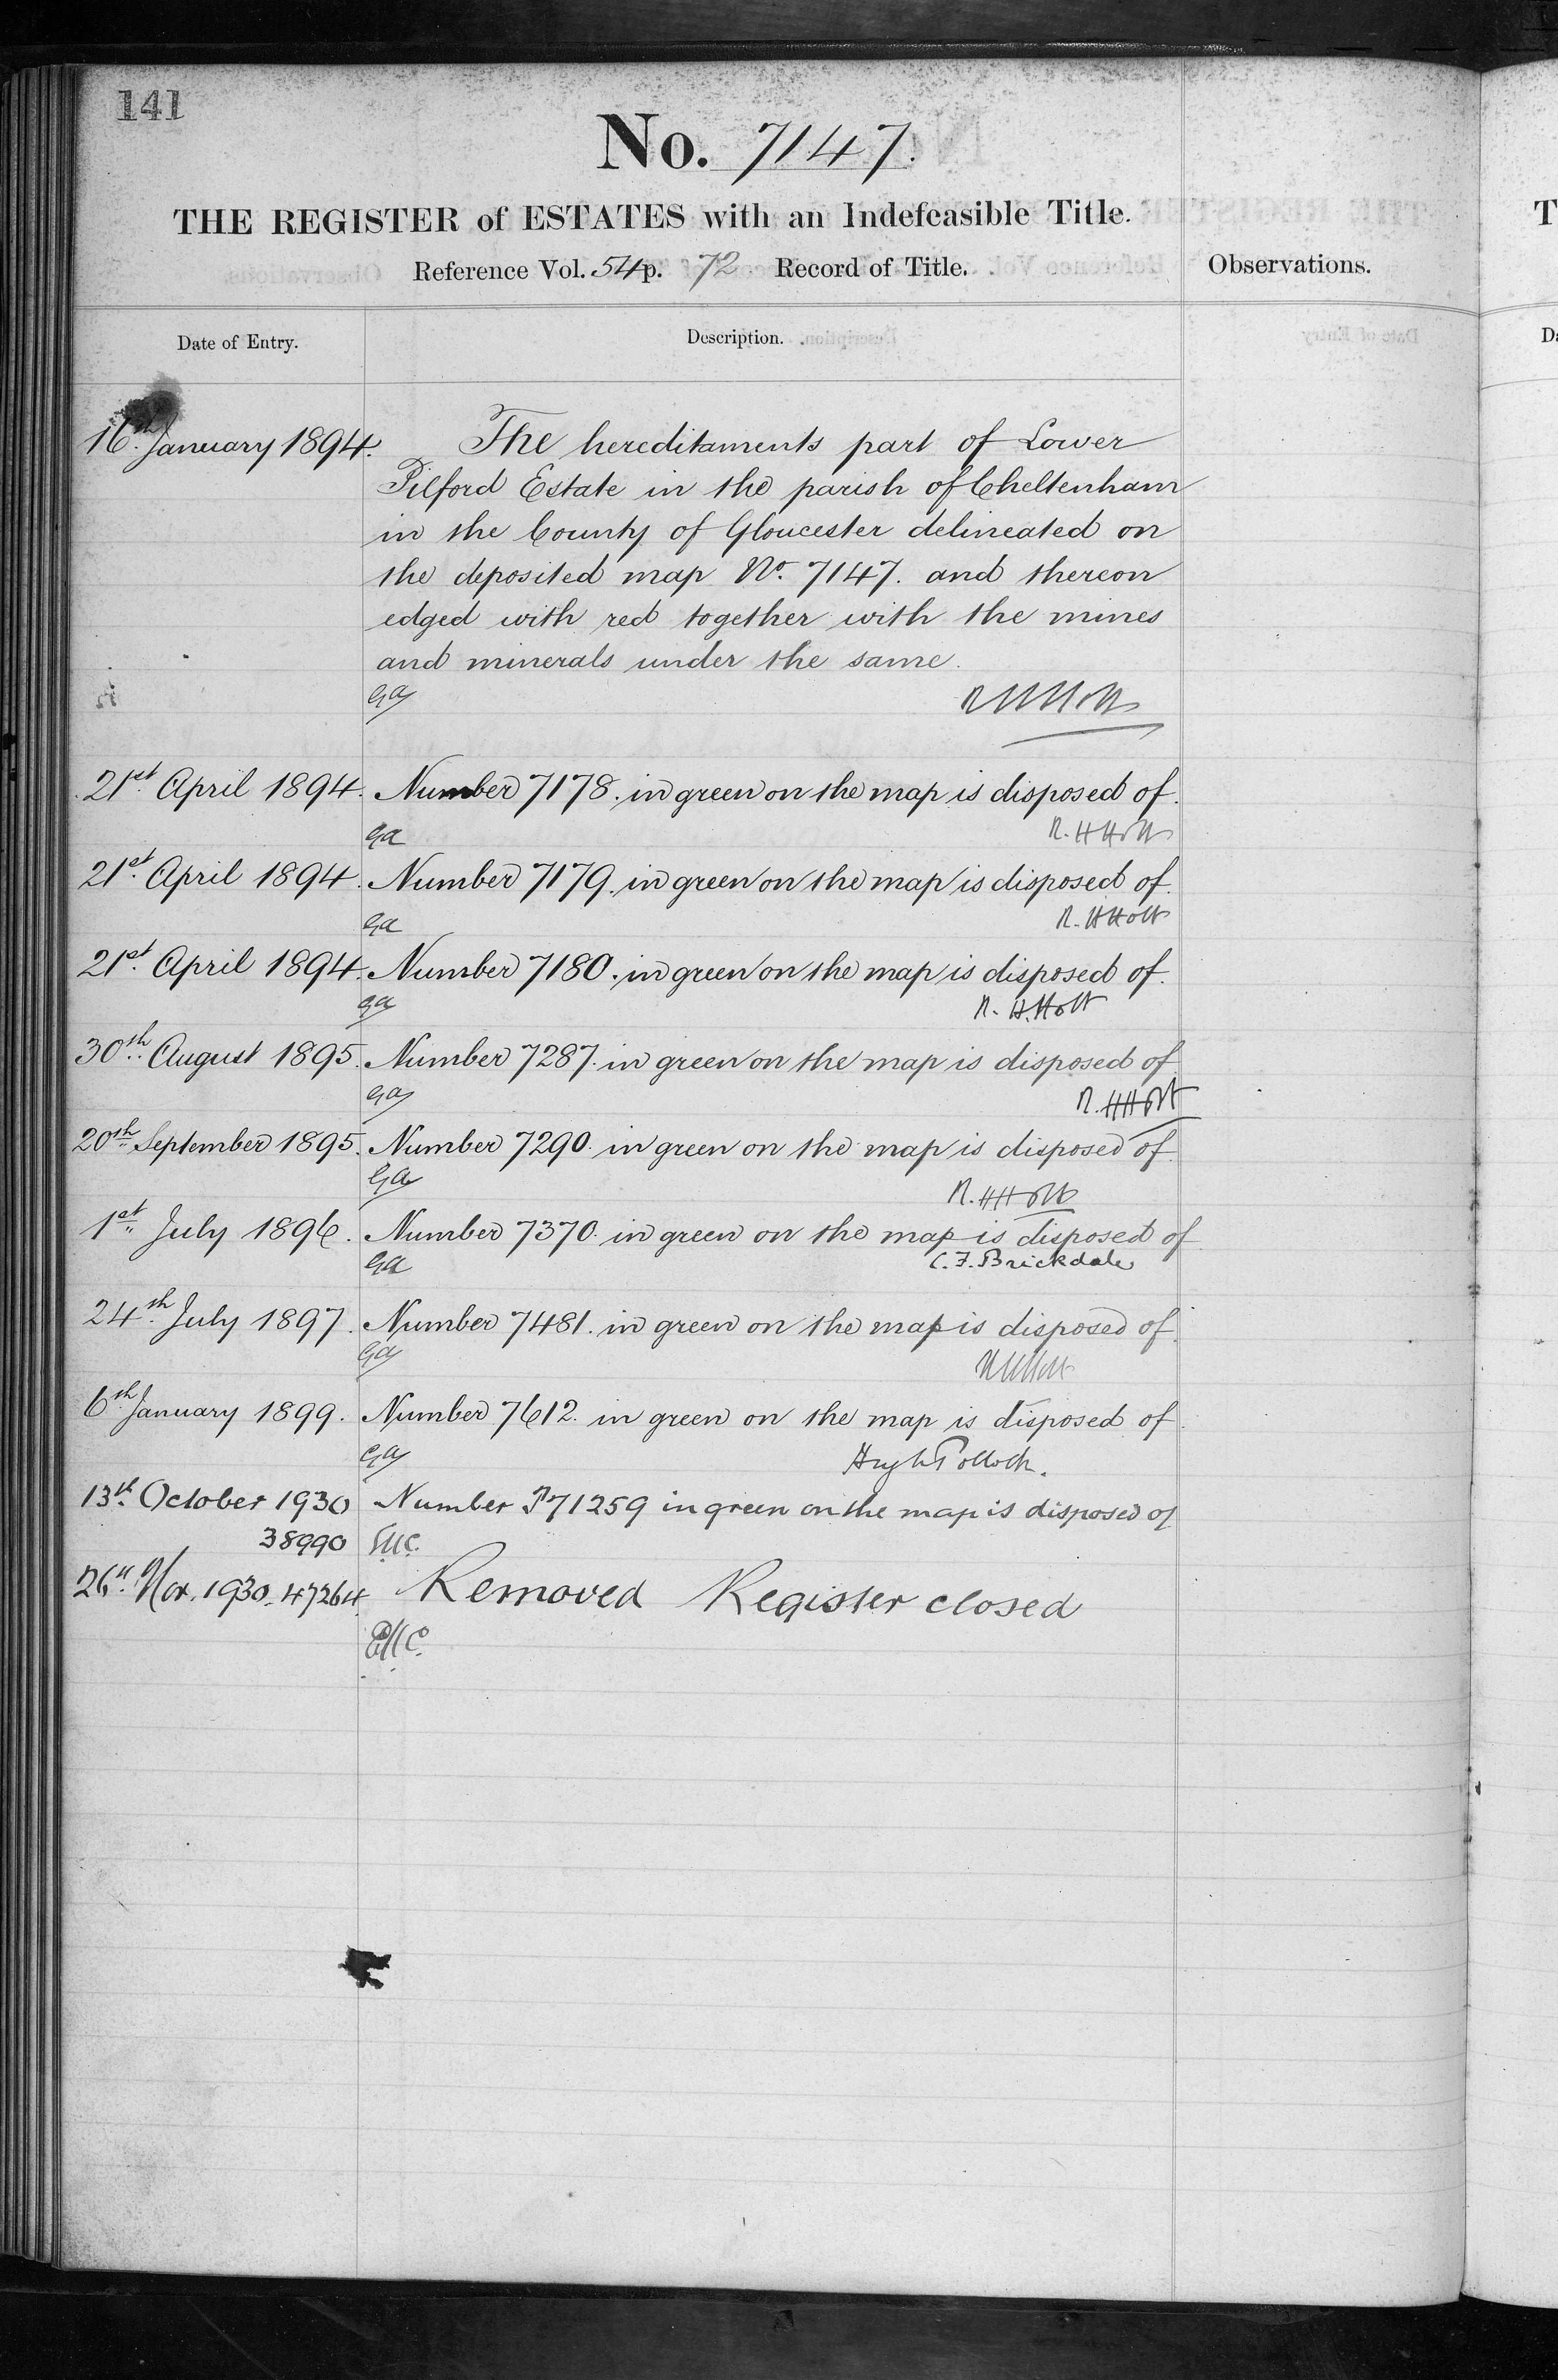 141
No. 7147.
THE REGISTER of ESTATES with an Indefeasible Title.
Reference Vol. 54 p. 72 Record of Title.
Observations.
Date of Entry.
Description.
16th January 1894.
The hereditaments part of Lower
Pilford Estate in the parish of Cheltenham
in the County of Gloucester delineated on
the deposited map No. 7147. and thereon
edged with red together with the mines
and minerals under the same.
Ga
R H Holt
21st April 1894. Number 7178. in green on the map is disposed of.
Ga R. H Holt
21st April 1894. Number 7179. in green on the map is disposed of.
Ga R. H Holt
21st April 1894. Number 7180. in green on the map is disposed of.
Ga R. H. Holt
30th August 1895. Number 7287. in green on the map is disposed of
Ga R. H Holt
20th September 1895. Number 7290. in green on the map is disposed of
Ga R. H Holt
1st July 1896. Number 7370. in green on the map is disposed of
Ga C. F. Brickdale
24th July 1897. Number 7481. in green on the map is disposed of.
Ga R H Holt
6th January 1899. Number 7612. in green on the map is disposed of.
Ga Hugh Pollock.
13th October 1930 Number P71259 in green on the map is disposed of
38990
26th Nov. 1930. 47264 Removed Register closed